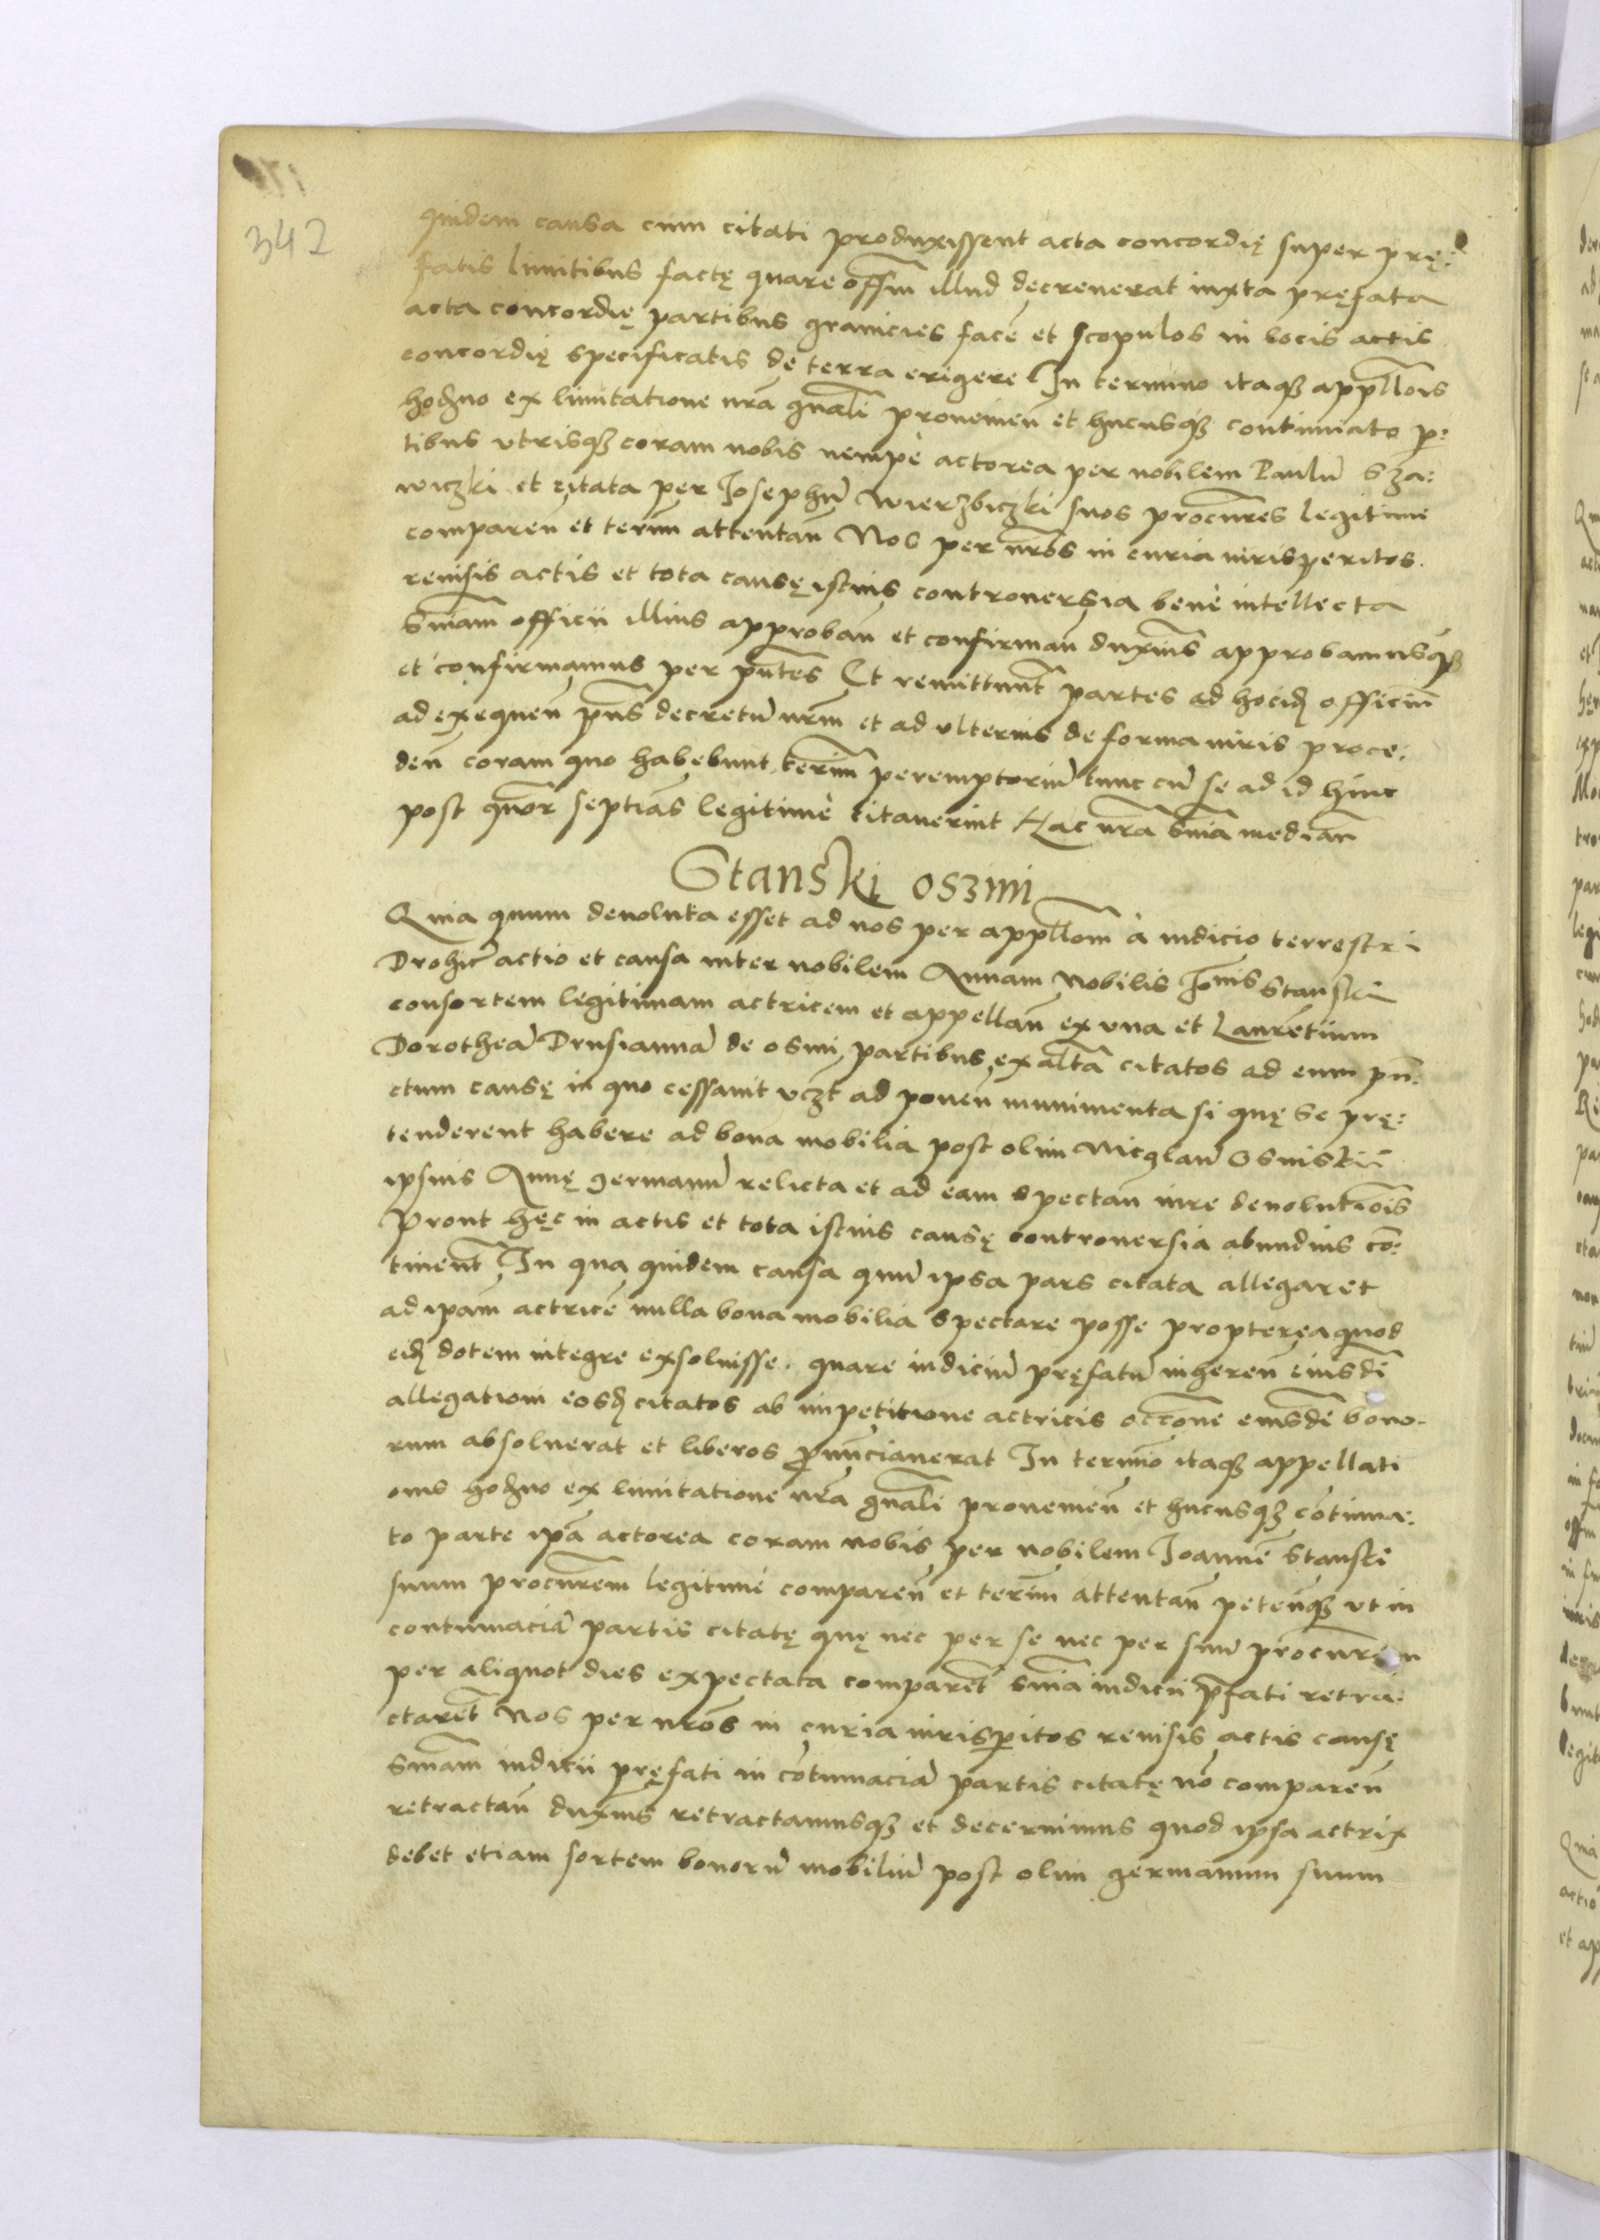 342
quidem causa cum citati produxissent acta concordię super prę:
fatis limitibus factę quare offm illud decreuerat iuxta pręfata
acta concordię partibus granicies facē et scopulos in locis actis
concordię specificatis de terra erigere In termino itaqȝ appllois
hodno ex limitatione nrā gnali prouenien̄ et hucusqȝ continuato p:
tibus vtrisqȝ coram nobis nempè actorea per nobilem Paulū Sza:
wiczki et citata per Josephū Wierzbiczki suos procures legitime
comparen̄ et termi attentan̄ Nos per nros in curia iurisperitos
reuisis actis et tota causę istius controuersia benè intellecta
Sniam officii illius approban̄ et confirman̄ duximus approbamusqȝ
et confirmamus per pntes Et remittuntͬ partes ad hocidͬ officiū
ad exequen̄ pns decretū nrm et ad vlterius de forma iuris proce:
den̄ coram quo habebunt termi peremptoriū tunc cū se ad id hinc
post quor septias legitimè citauerint Hac nra snia median̄
Stanski oszmi
Quia quum deuoluta esset ad nos per appllom à iudicio terrestri
Drohic̄ actio et causa inter nobilem Annam Nobilis Jonis Stanski
consortem legitimam actricem et appellan̄ ex vna et Laurētium
Dorotheā Drusiannā de osmi partibus ex altā citatos ad eum pn̄:
ctum causę in quo cessauit vczt ad ponen̄ munimenta si quę se prę:
tenderent habere ad bona mobilia post olim Nicqlaū Osmiskii
ipsius Annę germanū relicta et ad eam spectan̄ iure deuolutiois
Prout hęc in actis et tota istius causę controuersia abundius cō:
tinentͬ In qua quidem causa quū ipsa pars citata allegaret
ad ipam actricē nulla bona mobilia spectare posse proptereà quod
eidͬ dotem integre exsoluisse. quare iudiciū pręfatū inheren̄ eiusdē
allegationi eosdͬ citatos ab impetitione actricis occone eiusdē bono-
rum absoluerat et liberos pnuncianerat In termino itaqȝ appellati
onis hodno ex limitatione nrā gnali prouenien̄ et hucusqȝ cōtinua:
to parte ipā actorea coram nobis per nobilem Joannē Stanski
suum procurem legitimè comparen̄ et termi attentan̄ petenqȝ vt in
contumaciā partis citatę quę nec per se nec per suū procurem
per aliquot dies expectata comparet snia iudicii pfati retra:
ctaretͬ Nos per nros in curia iurispitos reuisis actis causę
Sniam iudicii pręfati in cōtumaciā partis citatę nō comparen̄
retractan̄ duximus retractamusqȝ et decernimus quod ipsa actrix
debet etiam sortem bonorū mobiliū post olim germanum suum